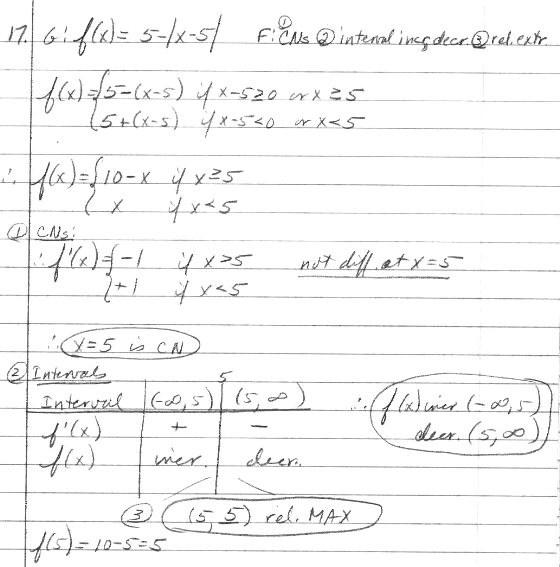 17. G: f(x) = 5-|x-5| F: ① CNs ② interval incr & decr. ③ rel. extr.
f(x) = { 5-(x-5) if x-5≥0 or x≥5
5+(x-5) if x-5<0 or x<5
∴ f(x) = { 10-x if x≥5
x if x<5
① CNs:
∴ f'(x) = { -1 if x>5 not diff. at x=5
+1 if x<5
∴ x=5 is CN
② Intervals 5
Interval (-∞,5) (5,∞) ∴ f(x) incr (-∞,5)
f'(x) + - decr. (5,∞)
f(x) incr. decr.
③ (5,5) rel. MAX
f(5)=10-5=5